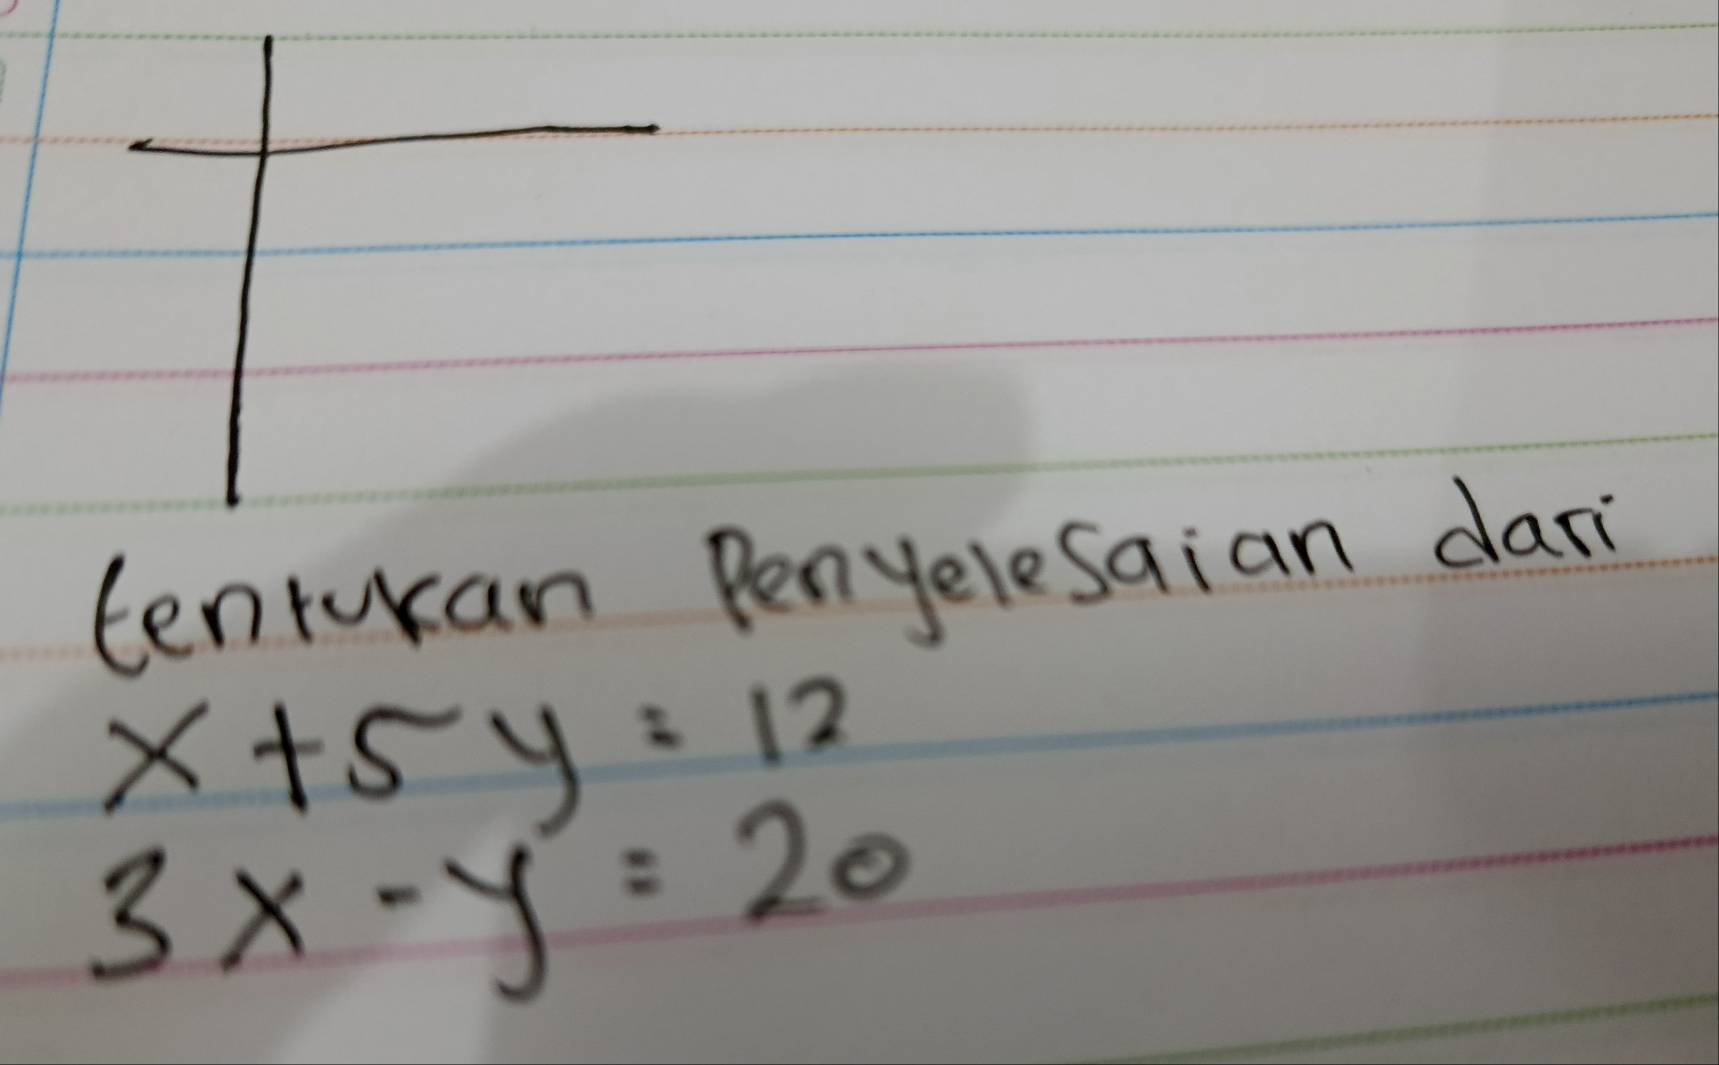 tentukan Penyelesaian dari
x + 5y = 12
3x - y = 20